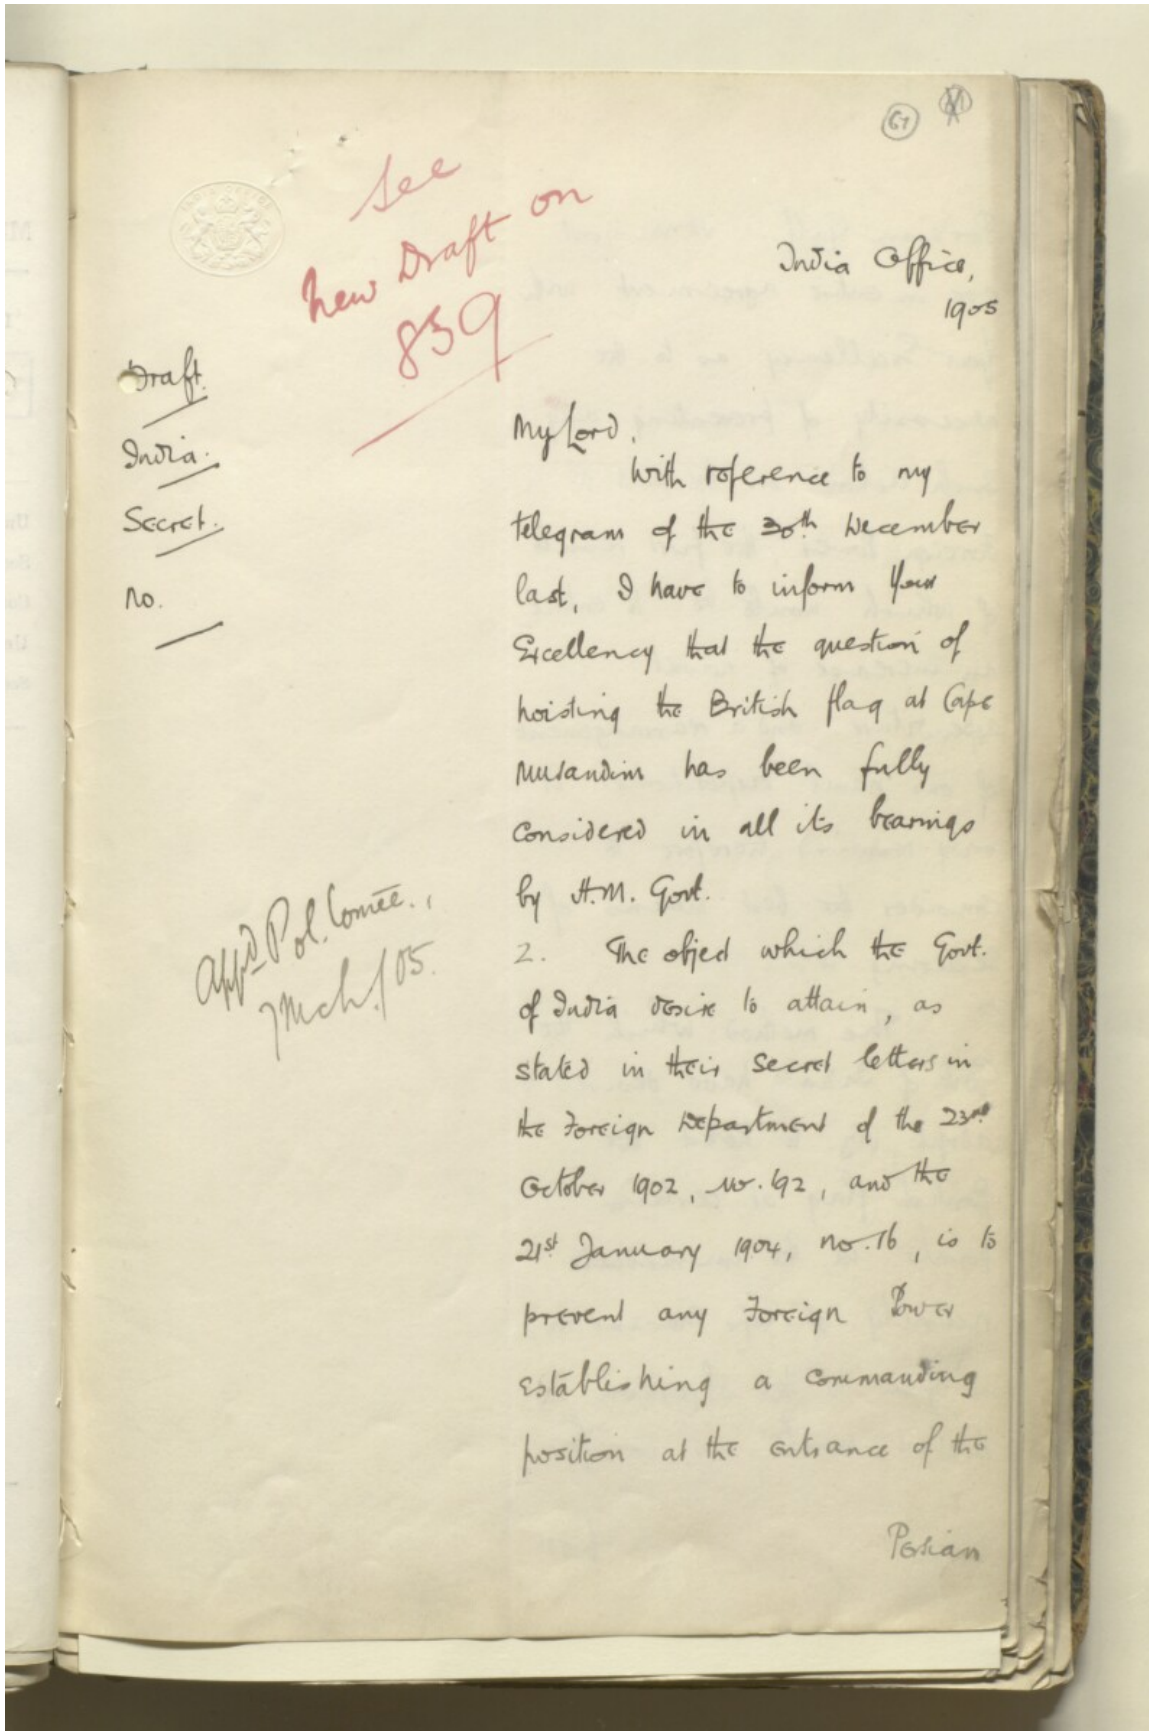 61
See
New Draft on
839
India Office,
1905
Draft.
India.
Secret.
No.
My Lord,
With reference to my
telegram of the 30th December
last, I have to inform Your
Excellency that the question of
hoisting the British flag at Cape
Musandim has been fully
considered in all its bearings
by H.M. Govt.
Appd Pol. Comtee.,
7 Mch./05.
2. The object which the Govt.
of India desire to attain, as
stated in their Secret letters in
the Foreign Department of the 23rd
October 1902, No. 192, and the
21st January 1904, No. 16, is to
prevent any Foreign Power
establishing a commanding
position at the entrance of the
Persian